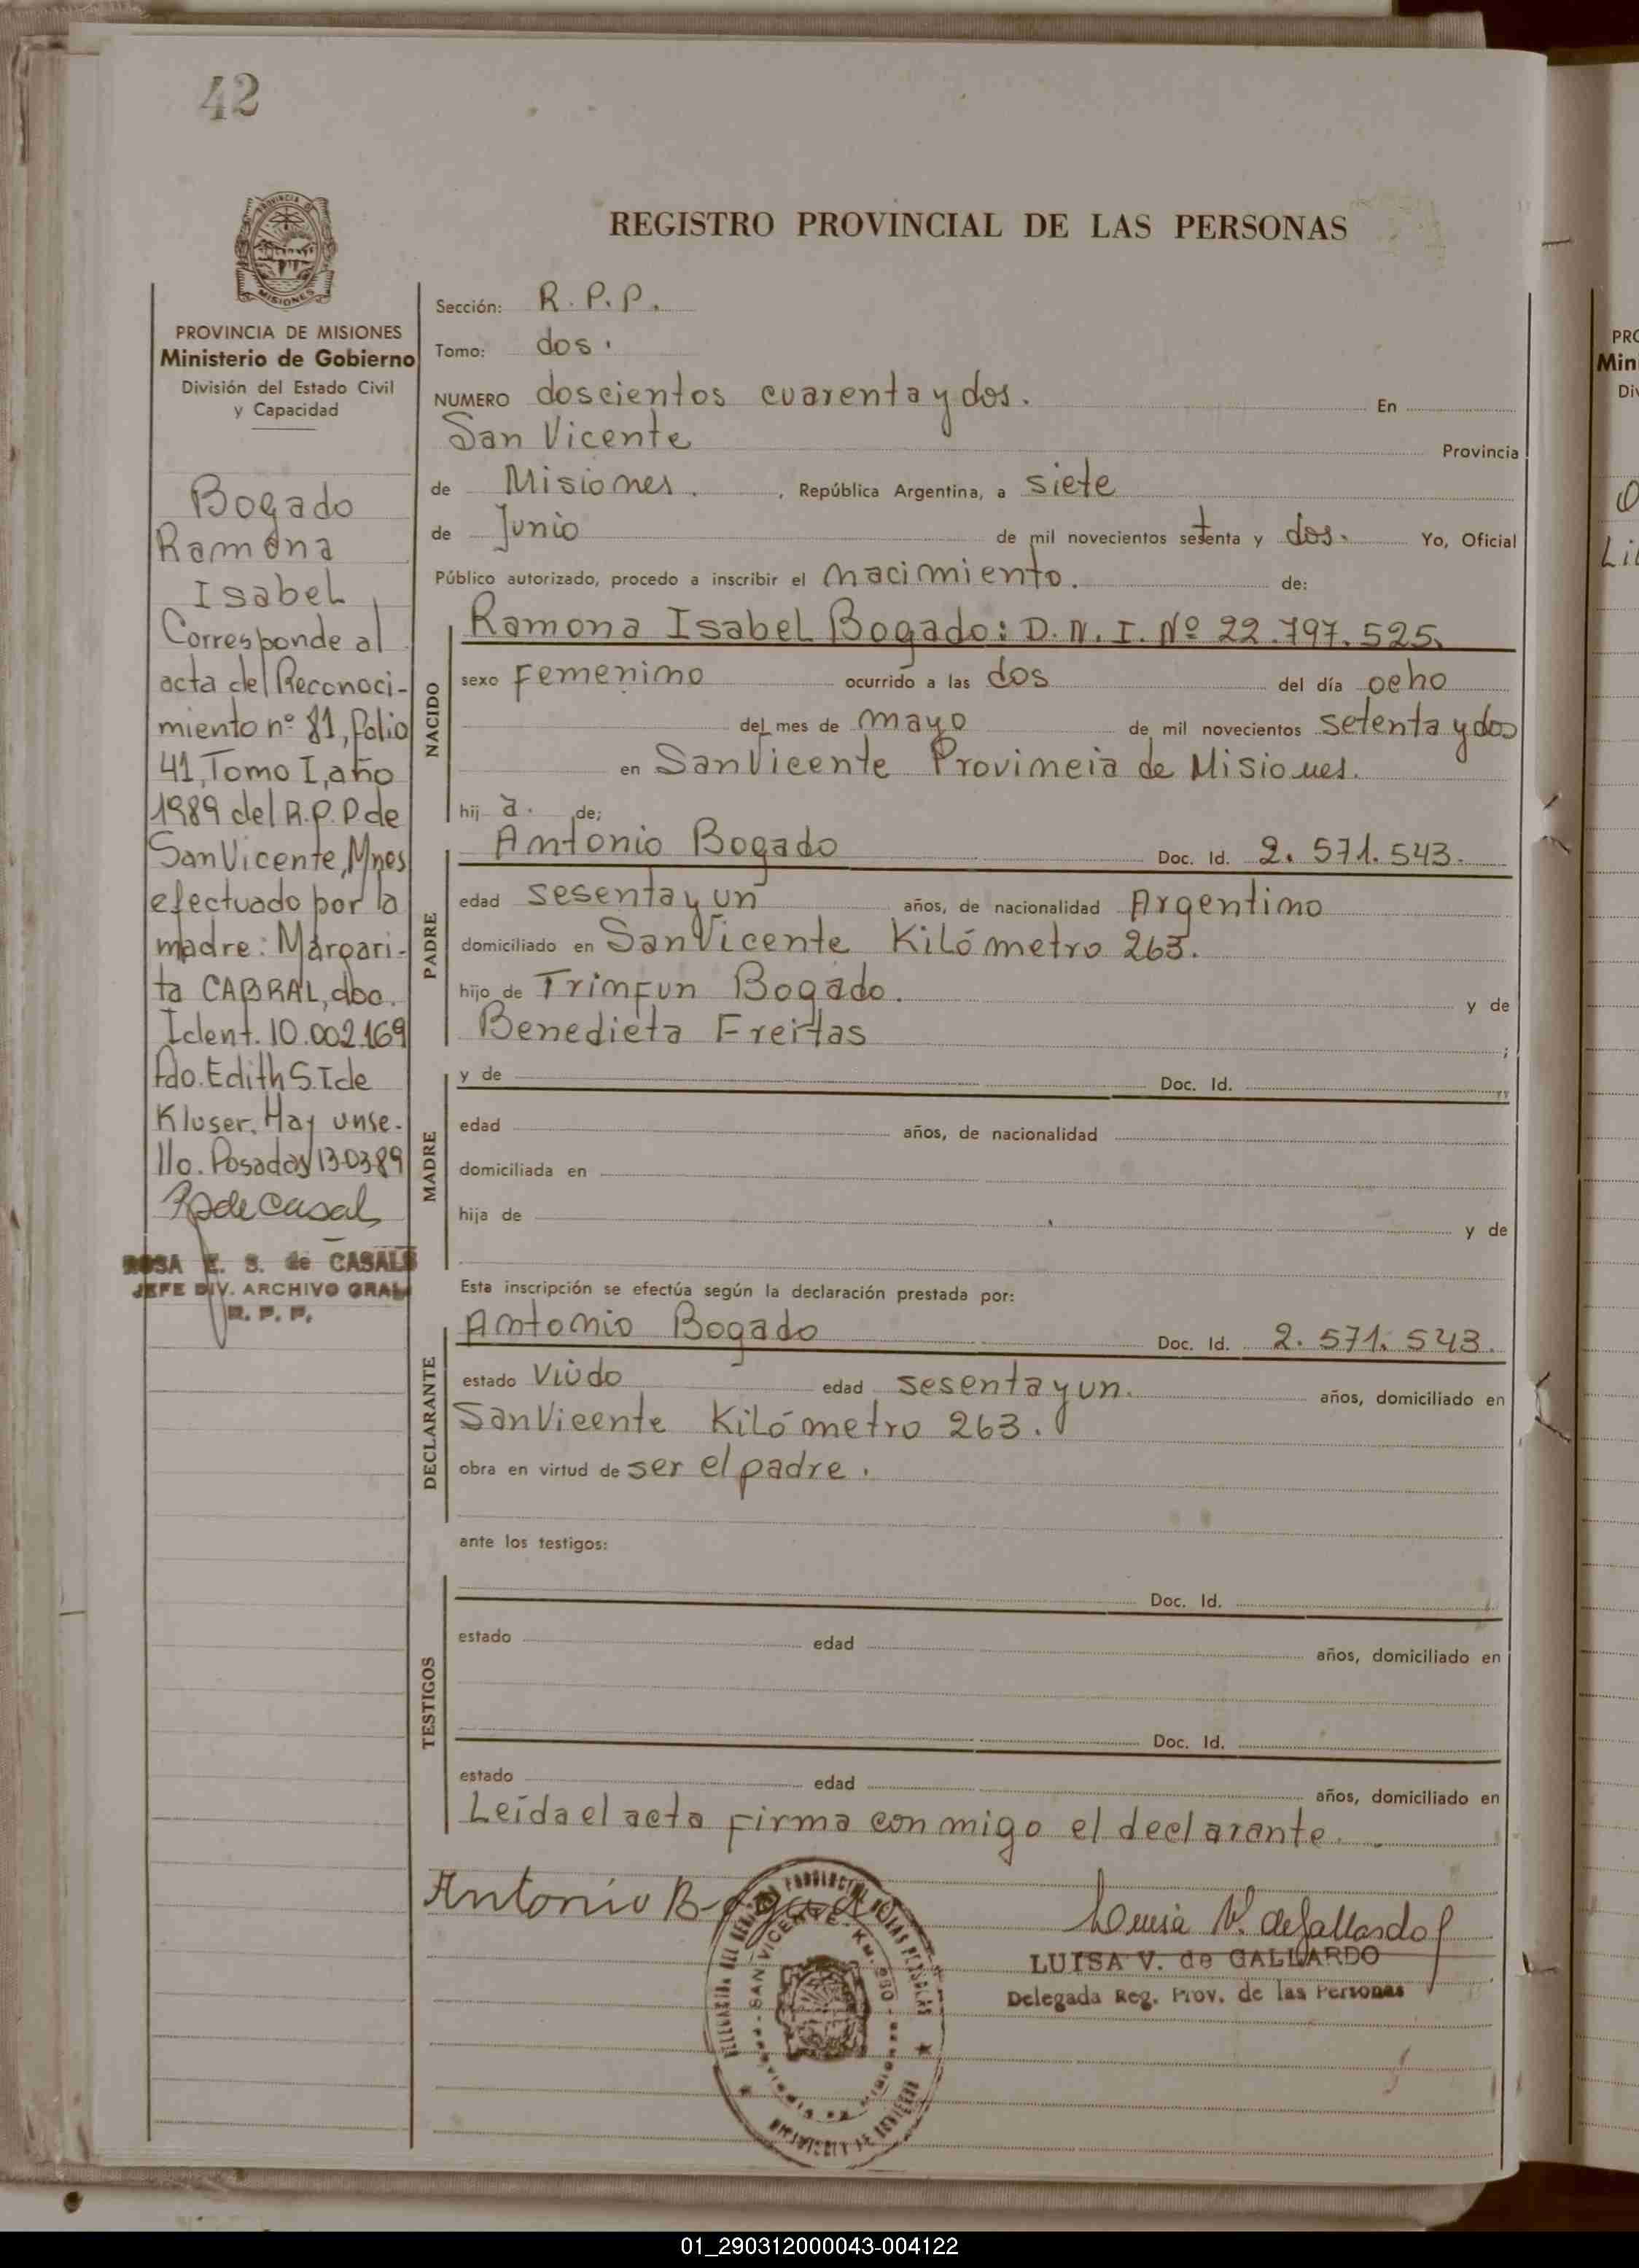 42
REGISTRO PROVINCIAL DE LAS PERSONAS
PROVINCIA DE
MISIONES
PROVINCIA DE MISIONES
Ministerio de Gobierno
División del Estado Civil
y Capacidad
Bogado
Ramona
Isabel
Corresponde al
acta del Reconoci-
miento nº 81, folio
41, Tomo I, año
1989 del R.P.P. de
San Vicente, Mnes
efectuado por la
madre: Margari-
ta CABRAL, doc.
Ident. 10.002.169
fdo. Edith S. Ide
Kluser. Hay un se-
llo. Posadas 13-03-89
R de Casals
ROSA E. S. de CASALS
JEFE DIV. ARCHIVO GRAL
R. P. P.
Sección: R. P. P.
Tomo: dos.
NUMERO doscientos cuarenta y dos. En
San Vicente Provincia
de Misiones. , República Argentina, a siete
de Junio de mil novecientos setenta y dos. Yo, Oficial
Público autorizado, procedo a inscribir el nacimiento. de:
NACIDO
Ramona Isabel Bogado: D.N.I. Nº 22.797.525.
sexo Femenino ocurrido a las dos del día ocho
del mes de mayo de mil novecientos setenta y dos
en San Vicente Provincia de Misiones.
hij a. de;
PADRE
Antonio Bogado Doc. Id. 2.571.543.
edad sesenta y un años, de nacionalidad Argentino
domiciliado en San Vicente Kilómetro 263.
hijo de Trinfun Bogado. y de
Benedicta Freitas ;
MADRE
y de Doc. Id.
edad años, de nacionalidad
domiciliada en
hija de y de
Esta inscripción se efectúa según la declaración prestada por:
DECLARANTE
Antonio Bogado Doc. Id. 2.571.543.
estado Viudo edad sesenta y un. años, domiciliado en
San Vicente Kilómetro 263.
obra en virtud de ser el padre.
ante los testigos:
TESTIGOS
Doc. Id.
estado edad años, domiciliado en
Doc. Id.
estado edad años, domiciliado en
Leída el acta firma conmigo el declarante.
Antonio Bogado
Luisa V. de Gallardo
LUISA V. de GALLARDO
Delegada Reg. Prov. de las Personas
SAN VICENTE - Km.
MINISTERIO DE GOBIERNO
PRO
Min
Div
Li
01_290312000043-004122